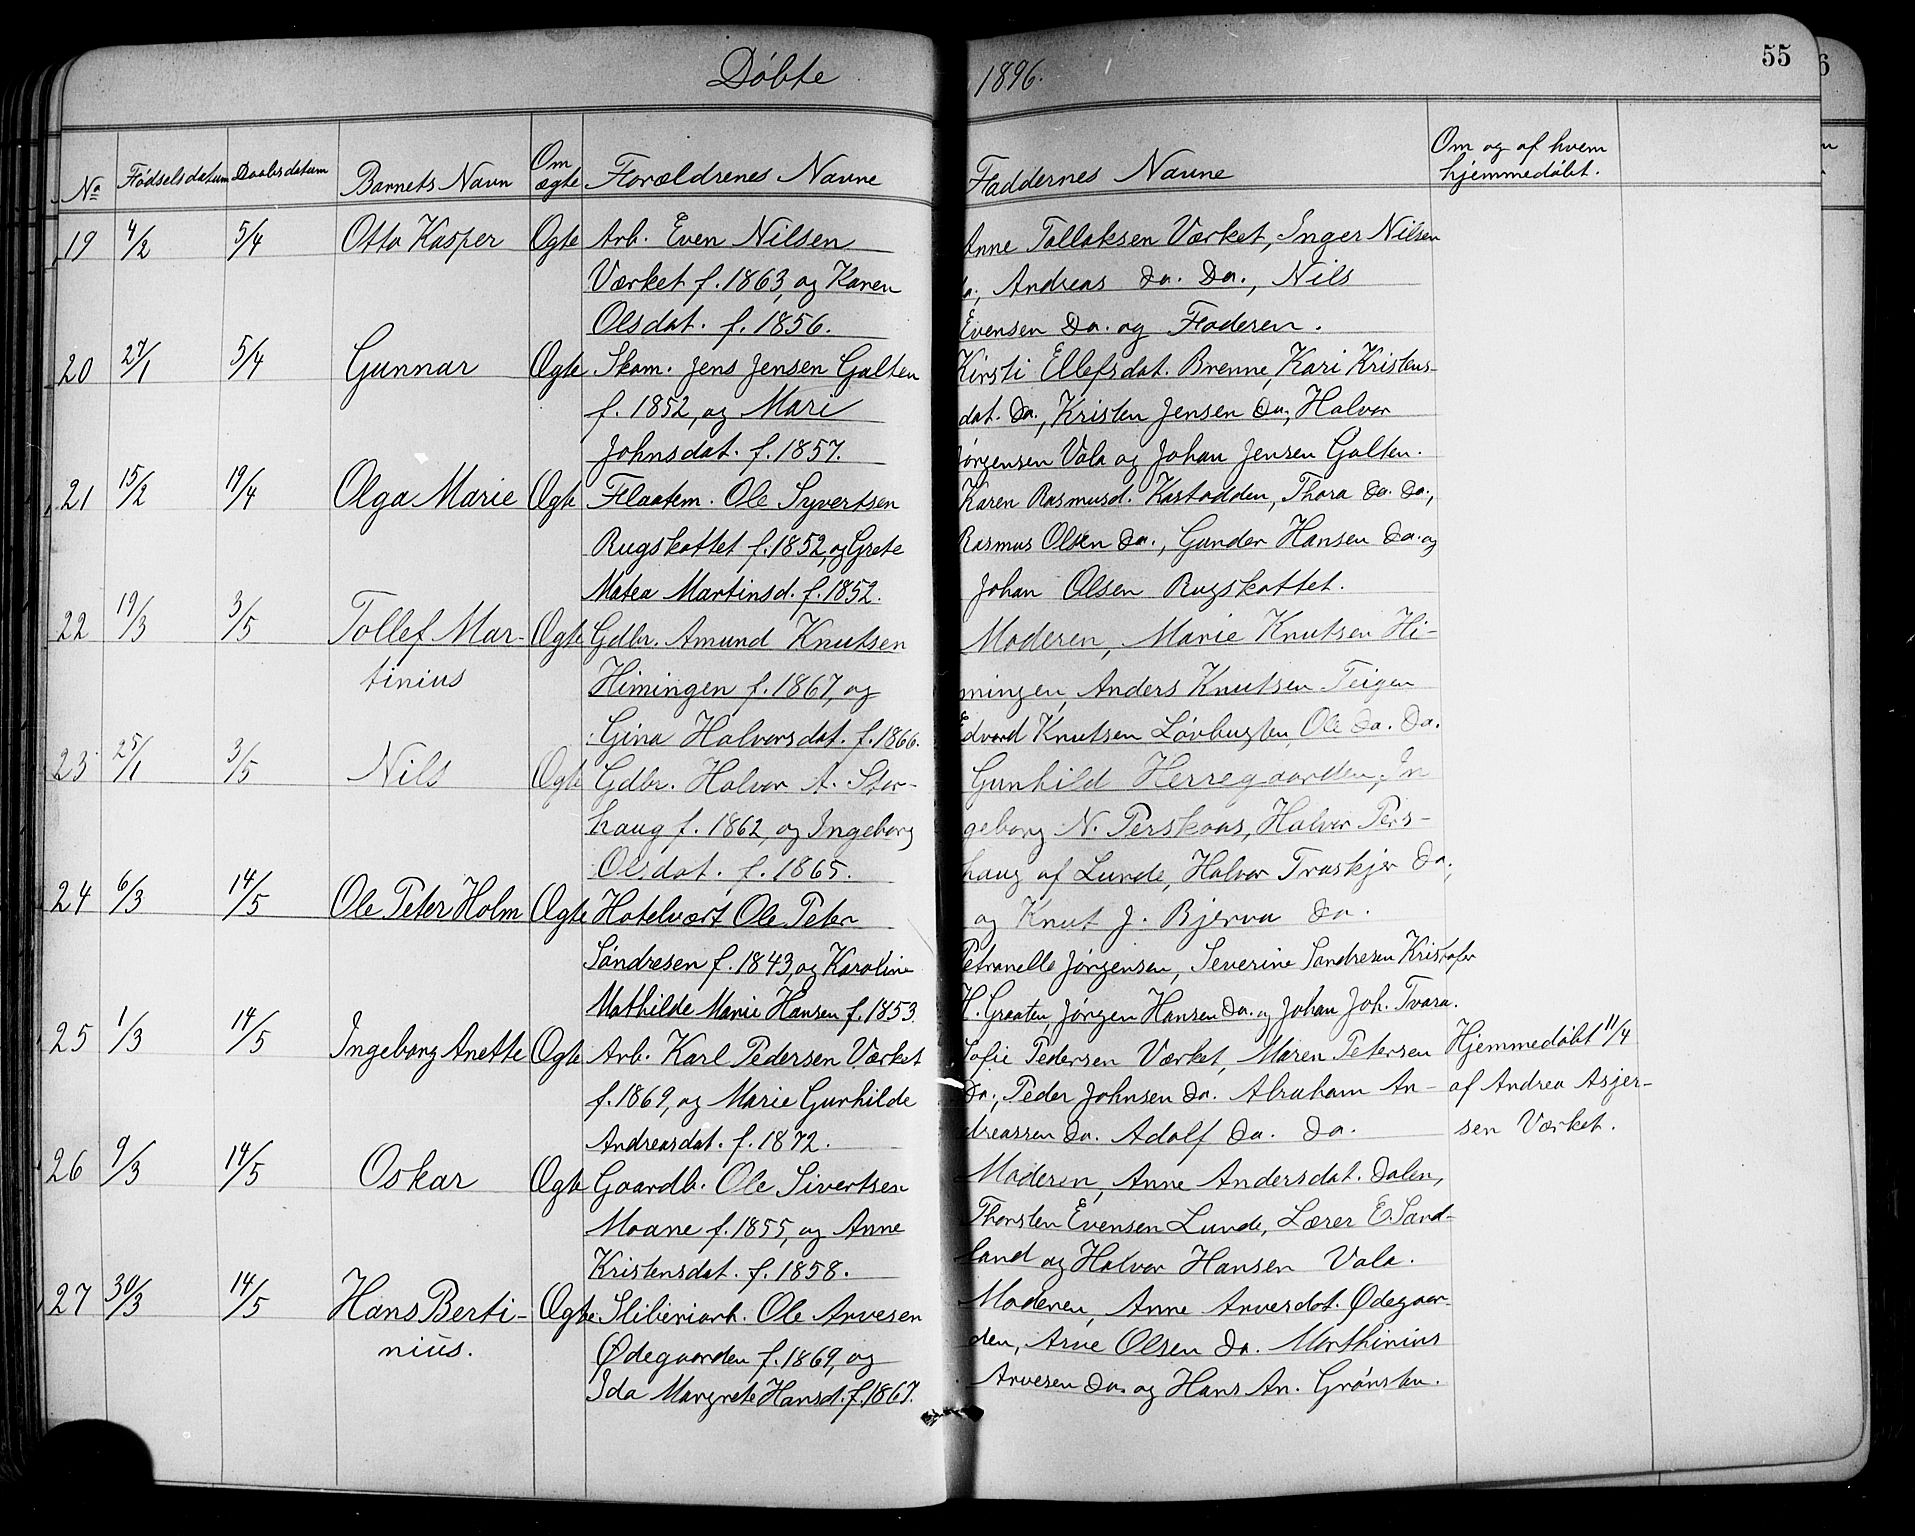 Døbte 1896. 55
No Fødselsdatum Daabsdatum Barnets Navn Om ægte Forældrenes Navne Faddernes Navne Om og af hvem hjemmedøbt.
19 4/2 5/4 Otto Kasper Ægte Arb. Even Nilsen Anne Tollaksen Værket, Inger Nilsen
Værket f. 1863, og Karen do., Andreas do. do., Nils
Olsdat. f. 1856. Evensen do. og Faderen.
20 27/1 5/4 Gunnar Ægte Skom. Jens Jensen Galten Kirsti Ellefsdat. Brenne, Kari Kristens-
f. 1852, og Mari dat. do., Kristen Jensen do., Halvor
Johnsdat. f. 1857. Jørgensen Vala og Johan Jensen Galten.
21 15/2 19/4 Olga Marie Ægte Flaatem. Ole Syvertsen Karen Rasmusd. Kastodden, Thora do. do.,
Rugskottet f. 1852, og Grete Rasmus Olsen do., Gunder Hansen do. og
Matea Martinsd. f. 1852. Johan Olsen Rugskottet.
22 19/3 3/5 Tollef Mar- Ægte Gdbr. Amund Knutsen Moderen, Marie Knutsen Hi-
tinius Himingen f. 1867, og mingen, Anders Knutsen Teigen
Gina Halvorsdat. f. 1866. Edvard Knutsen Løvbugten, Ole do. do.
23 25/1 3/5 Nils Ægte Gdbr. Halvor A. Stor- Gunhild Herregaarden, In
haug f. 1862, og Ingeborg geborg N. Perskaas, Halvor Pers-
Olsdat. f. 1865. haug af Lunde, Halvor Traskjer do.,
24 6/3 14/5 Ole Peter Holm Ægte Hotelvært Ole Peter og Knut J. Bjerva do.
Søndresen f. 1843, og Karoline Petronelle Jørgensen, Severine Søndresen Kristofer
Mathilde Marie Hansen f. 1853. H. Graaten, Jørgen Hansen do. og Johan Joh. Tvara.
25 1/3 14/5 Ingeborg Anette Ægte Arb. Karl Pedersen Værket Sofie Pedersen Værket, Maren Petersen Hjemmedøbt 11/4
f. 1869, og Marie Gunhilde do., Peder Johnsen do. Abraham An- af Andrea Asjer-
Andreasdat. f. 1872. dreassen do. Adolf do. do. sen Værket.
26 9/3 14/5 Oskar Ægte Gaardb. Ole Sivertsen Moderen, Anne Andersdat. Dalen,
Moane f. 1855, og Anne Thorsten Evensen Lunde, Lærer E. Sand-
Kristensdat. f. 1858. land og Halvor Hansen Vala.
27 30/3 14/5 Hans Berti- Ægte Sliberiarb. Ole Arvesen Moderen, Anne Arvesdat. Ødegaar-
nius. Ødegaarden f. 1869, og den, Arve Olsen do. Marthinius
Ida Margrete Hansd. f. 1867. Arvesen do. og Hans An. Grønsten.